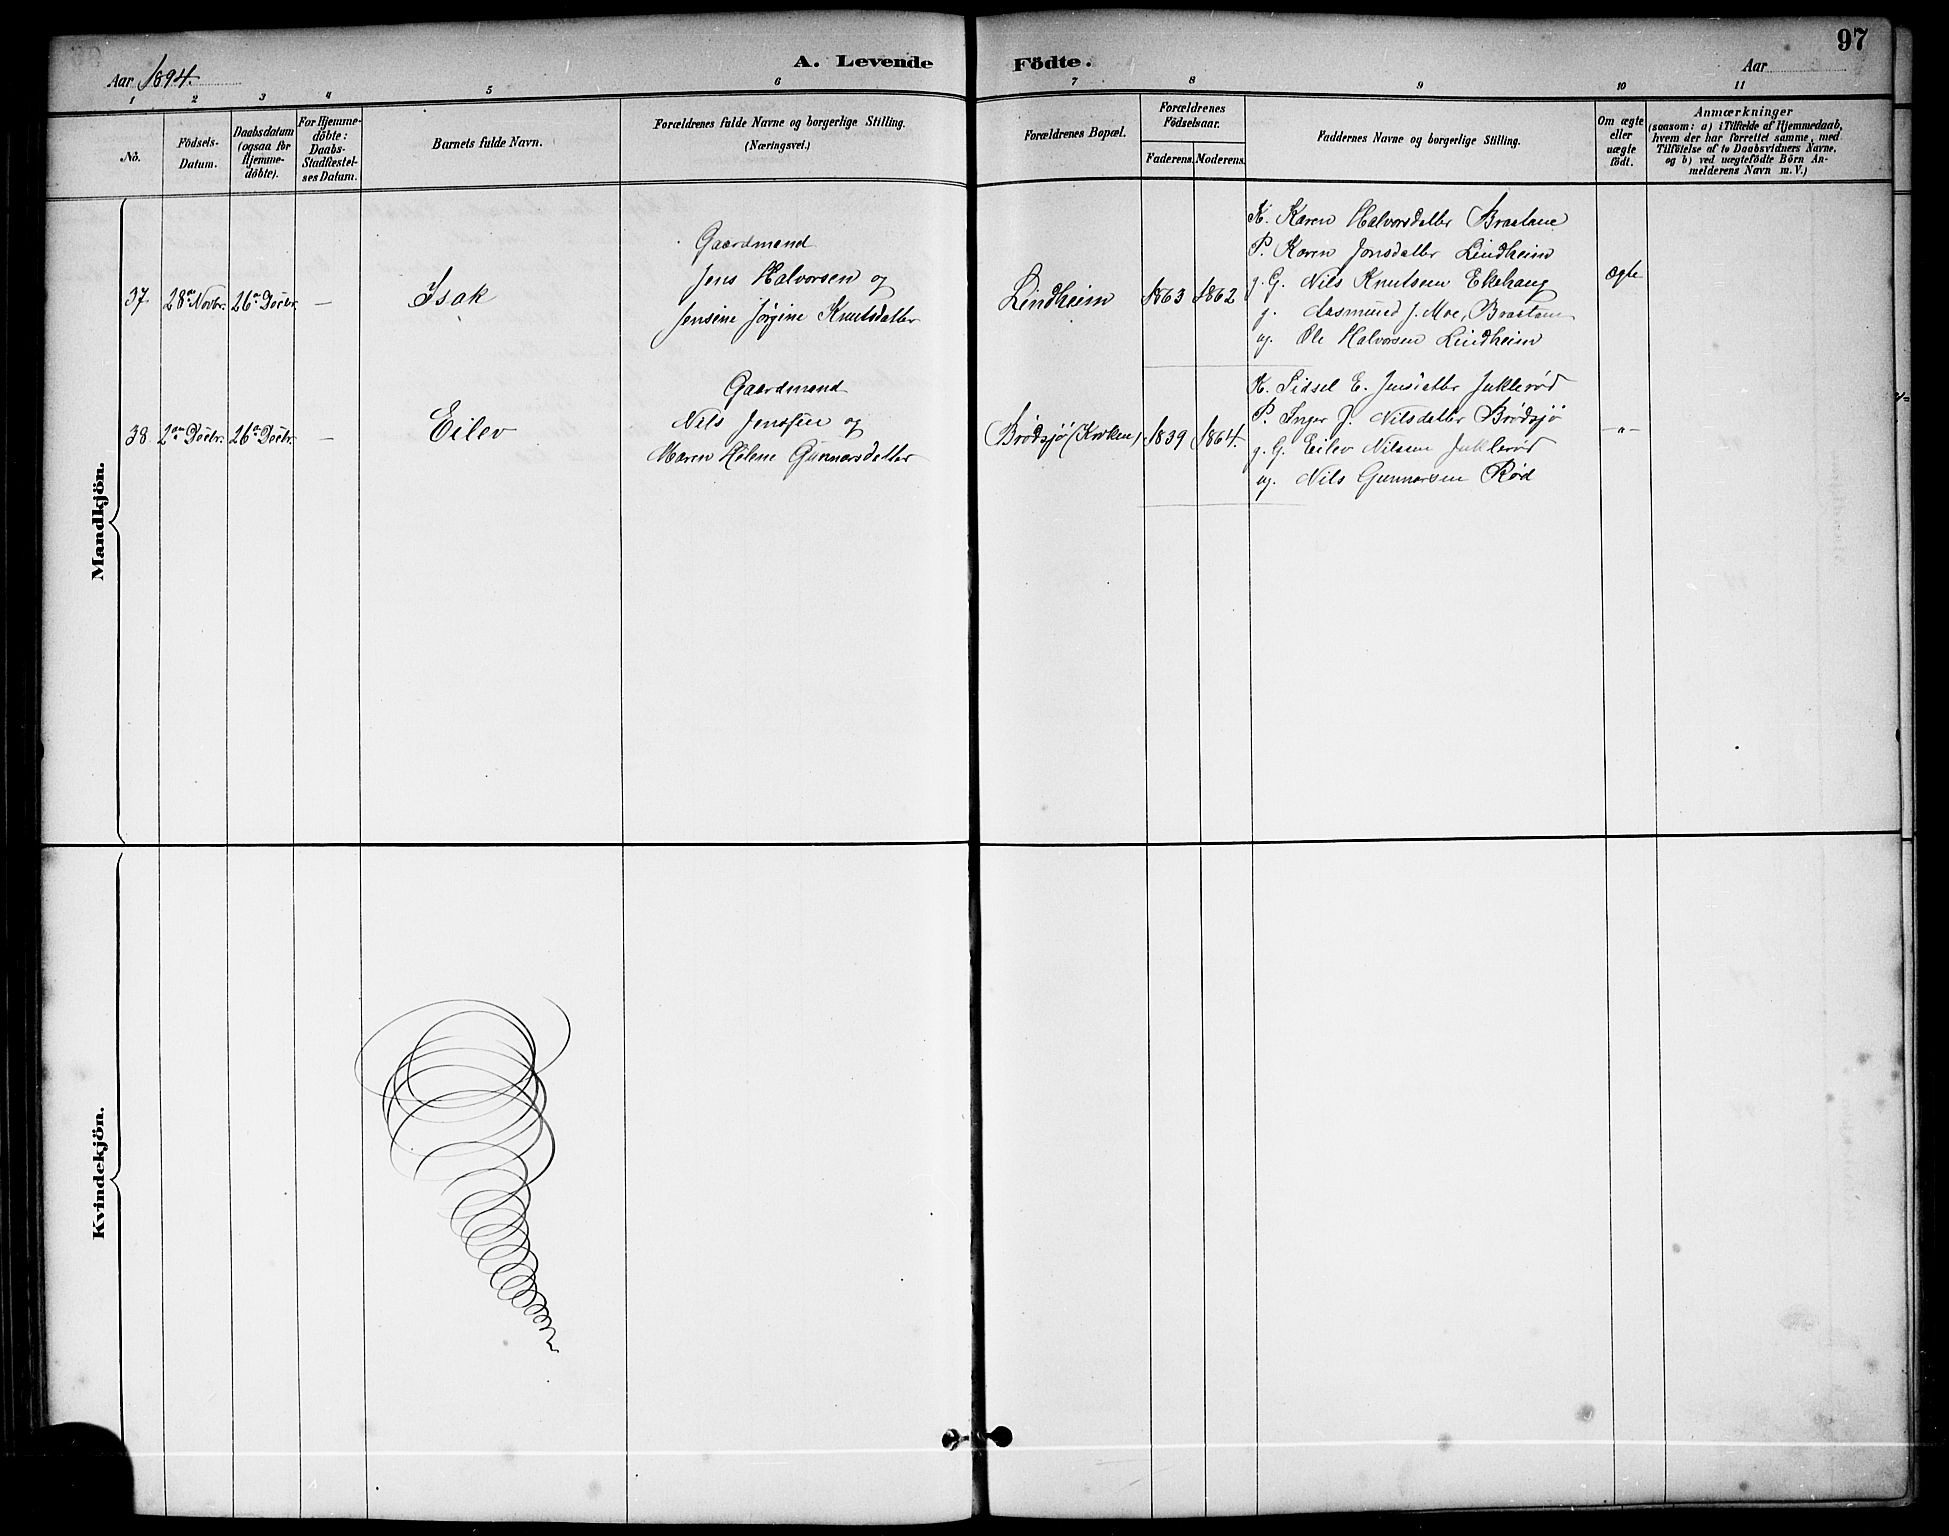 97
A. Levende Födte.
Aar 1894.
Aar
1 2 3 4 5 6 7 8 9 10 11
No.
Födsels-
Datum.
Daabsdatum
(ogsaa for
Hjemme-
døbte).
For Hjemme-
døbte:
Daabs-
Stadfæstel-
ses Datum.
Barnets fulde Navn.
Forældrenes fulde Navne og borgerlige Stilling.
(Næringsvei.)
Forældrenes Bopæl.
Forældrenes
Födselsaar.
Faderens. Moderens.
Faddernes Navne og borgerlige Stilling.
Om ægte
eller
uægte
födt.
Anmærkninger
(saasom: a) i Tilfælde af Hjemmedaab,
hvem der har forrettet samme, med
Tilföielse af to Daabsvidners Navne,
og b) ved uægtefödte Börn An-
melderens Navn m. V.)
Mandkjön.
37. 28de Novbr. 26de Decbr. — Isak
Gaardmand
Jens Halvorsen og
Jensine Jørgine Knutsdatter
Lindheim 1863 1862
K. Karen Halvorsdatter Braatane
P. Karen Jonsdatter Lindheim
g. G. Nils Knutsen Ekehaug
g. Aasmund J. Moe, Braatane
ug. Ole Halvorsen Lindheim
Ægte
38 2den Decbr. 26de Decbr. — Eilev
Gaardmand
Nils Jensen og
Maren Helene Gunnarsdatter
Brødsjø (Kroken) 1839 1864.
K. Sidsel E. Jensdatter Juklerød
P. Inger J. Nilsdatter Brødsjø
g. G. Eilev Nilsen Juklerød
ug. Nils Gunnarsen Rød
—"—
Kvindekjön.